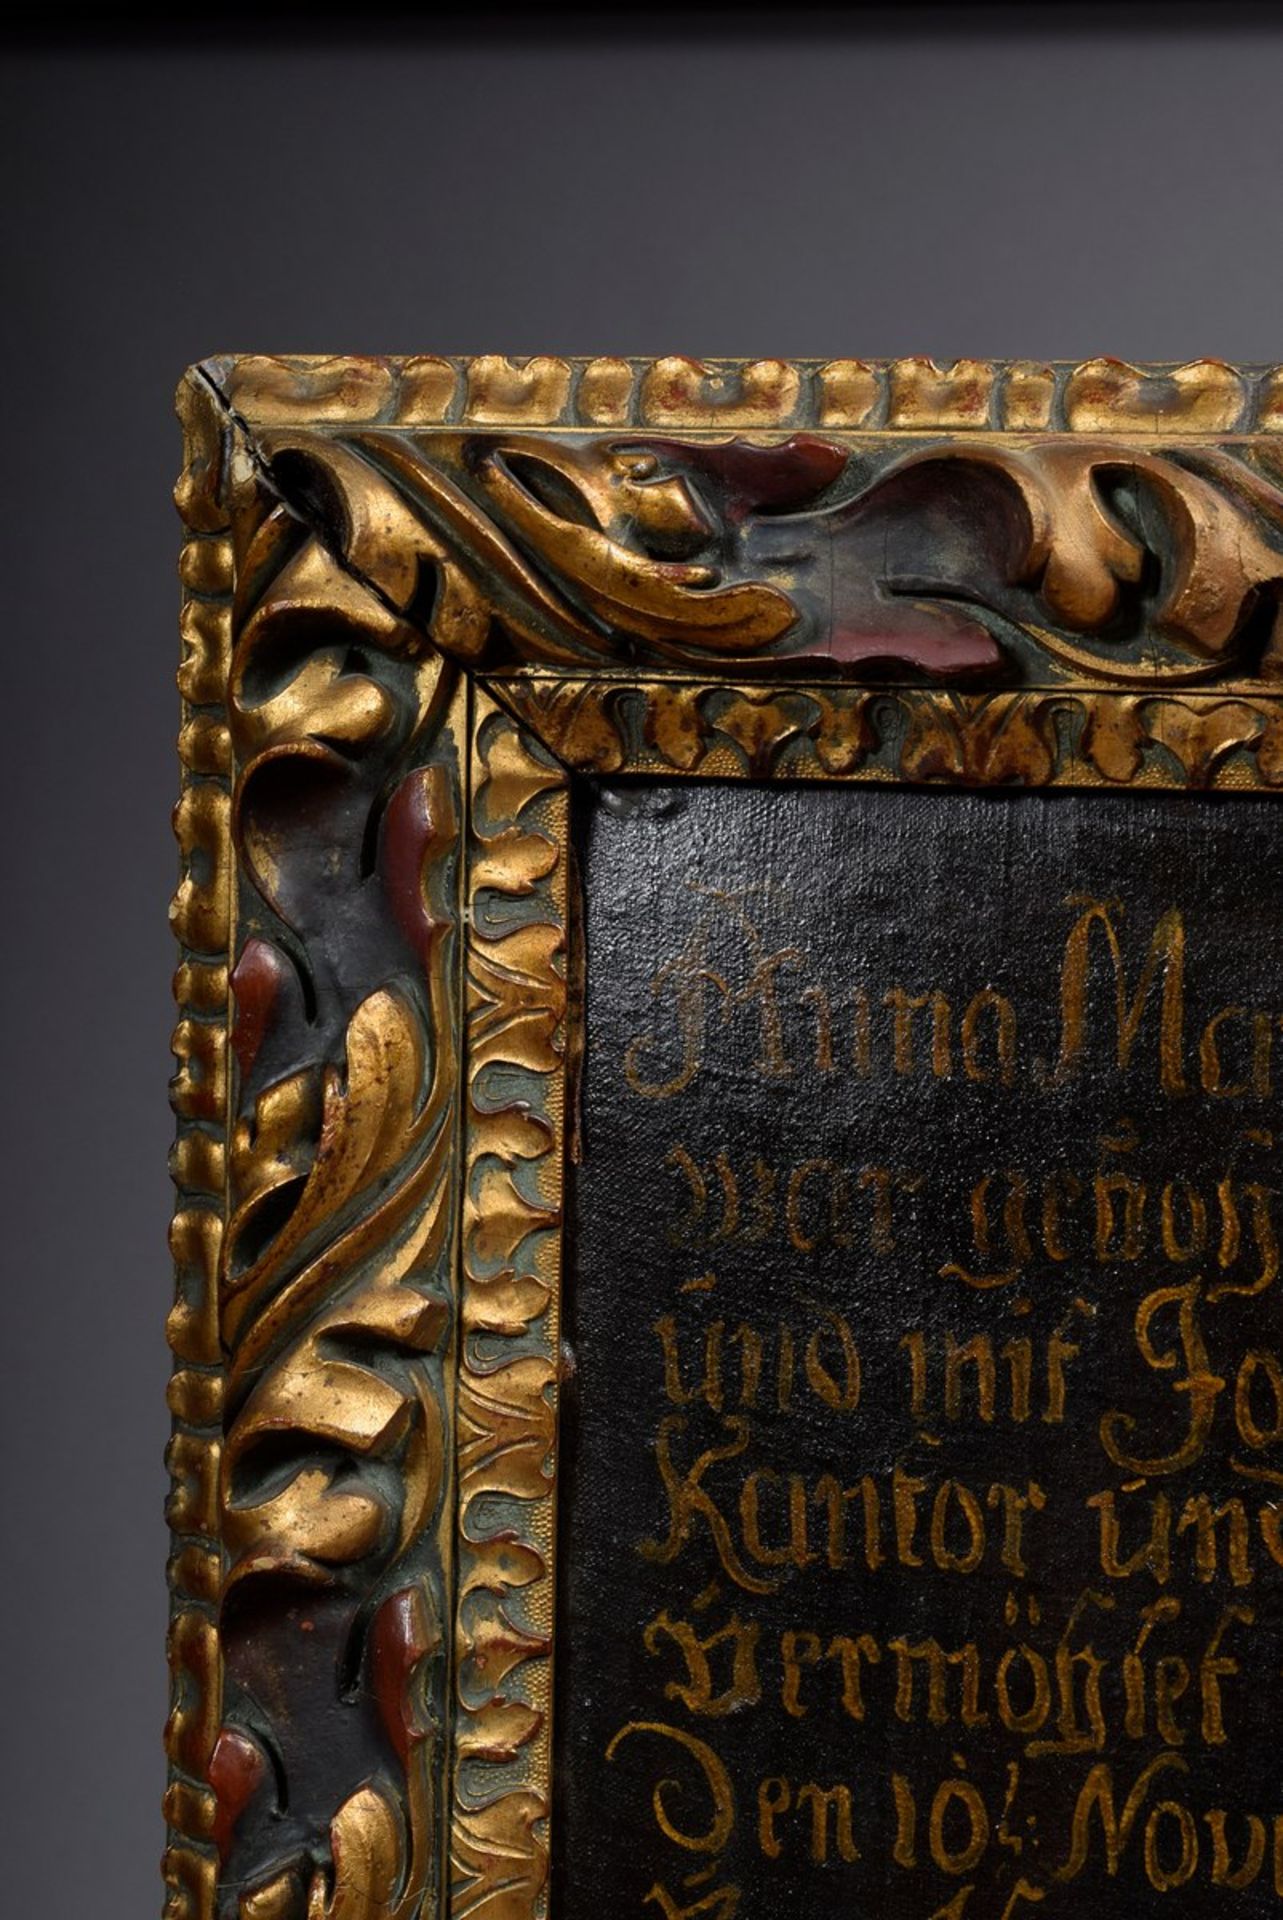 Anna Ma
war gebohr
und mit Jo
Kantor und
Vermöhlet
Den 10t: Nov